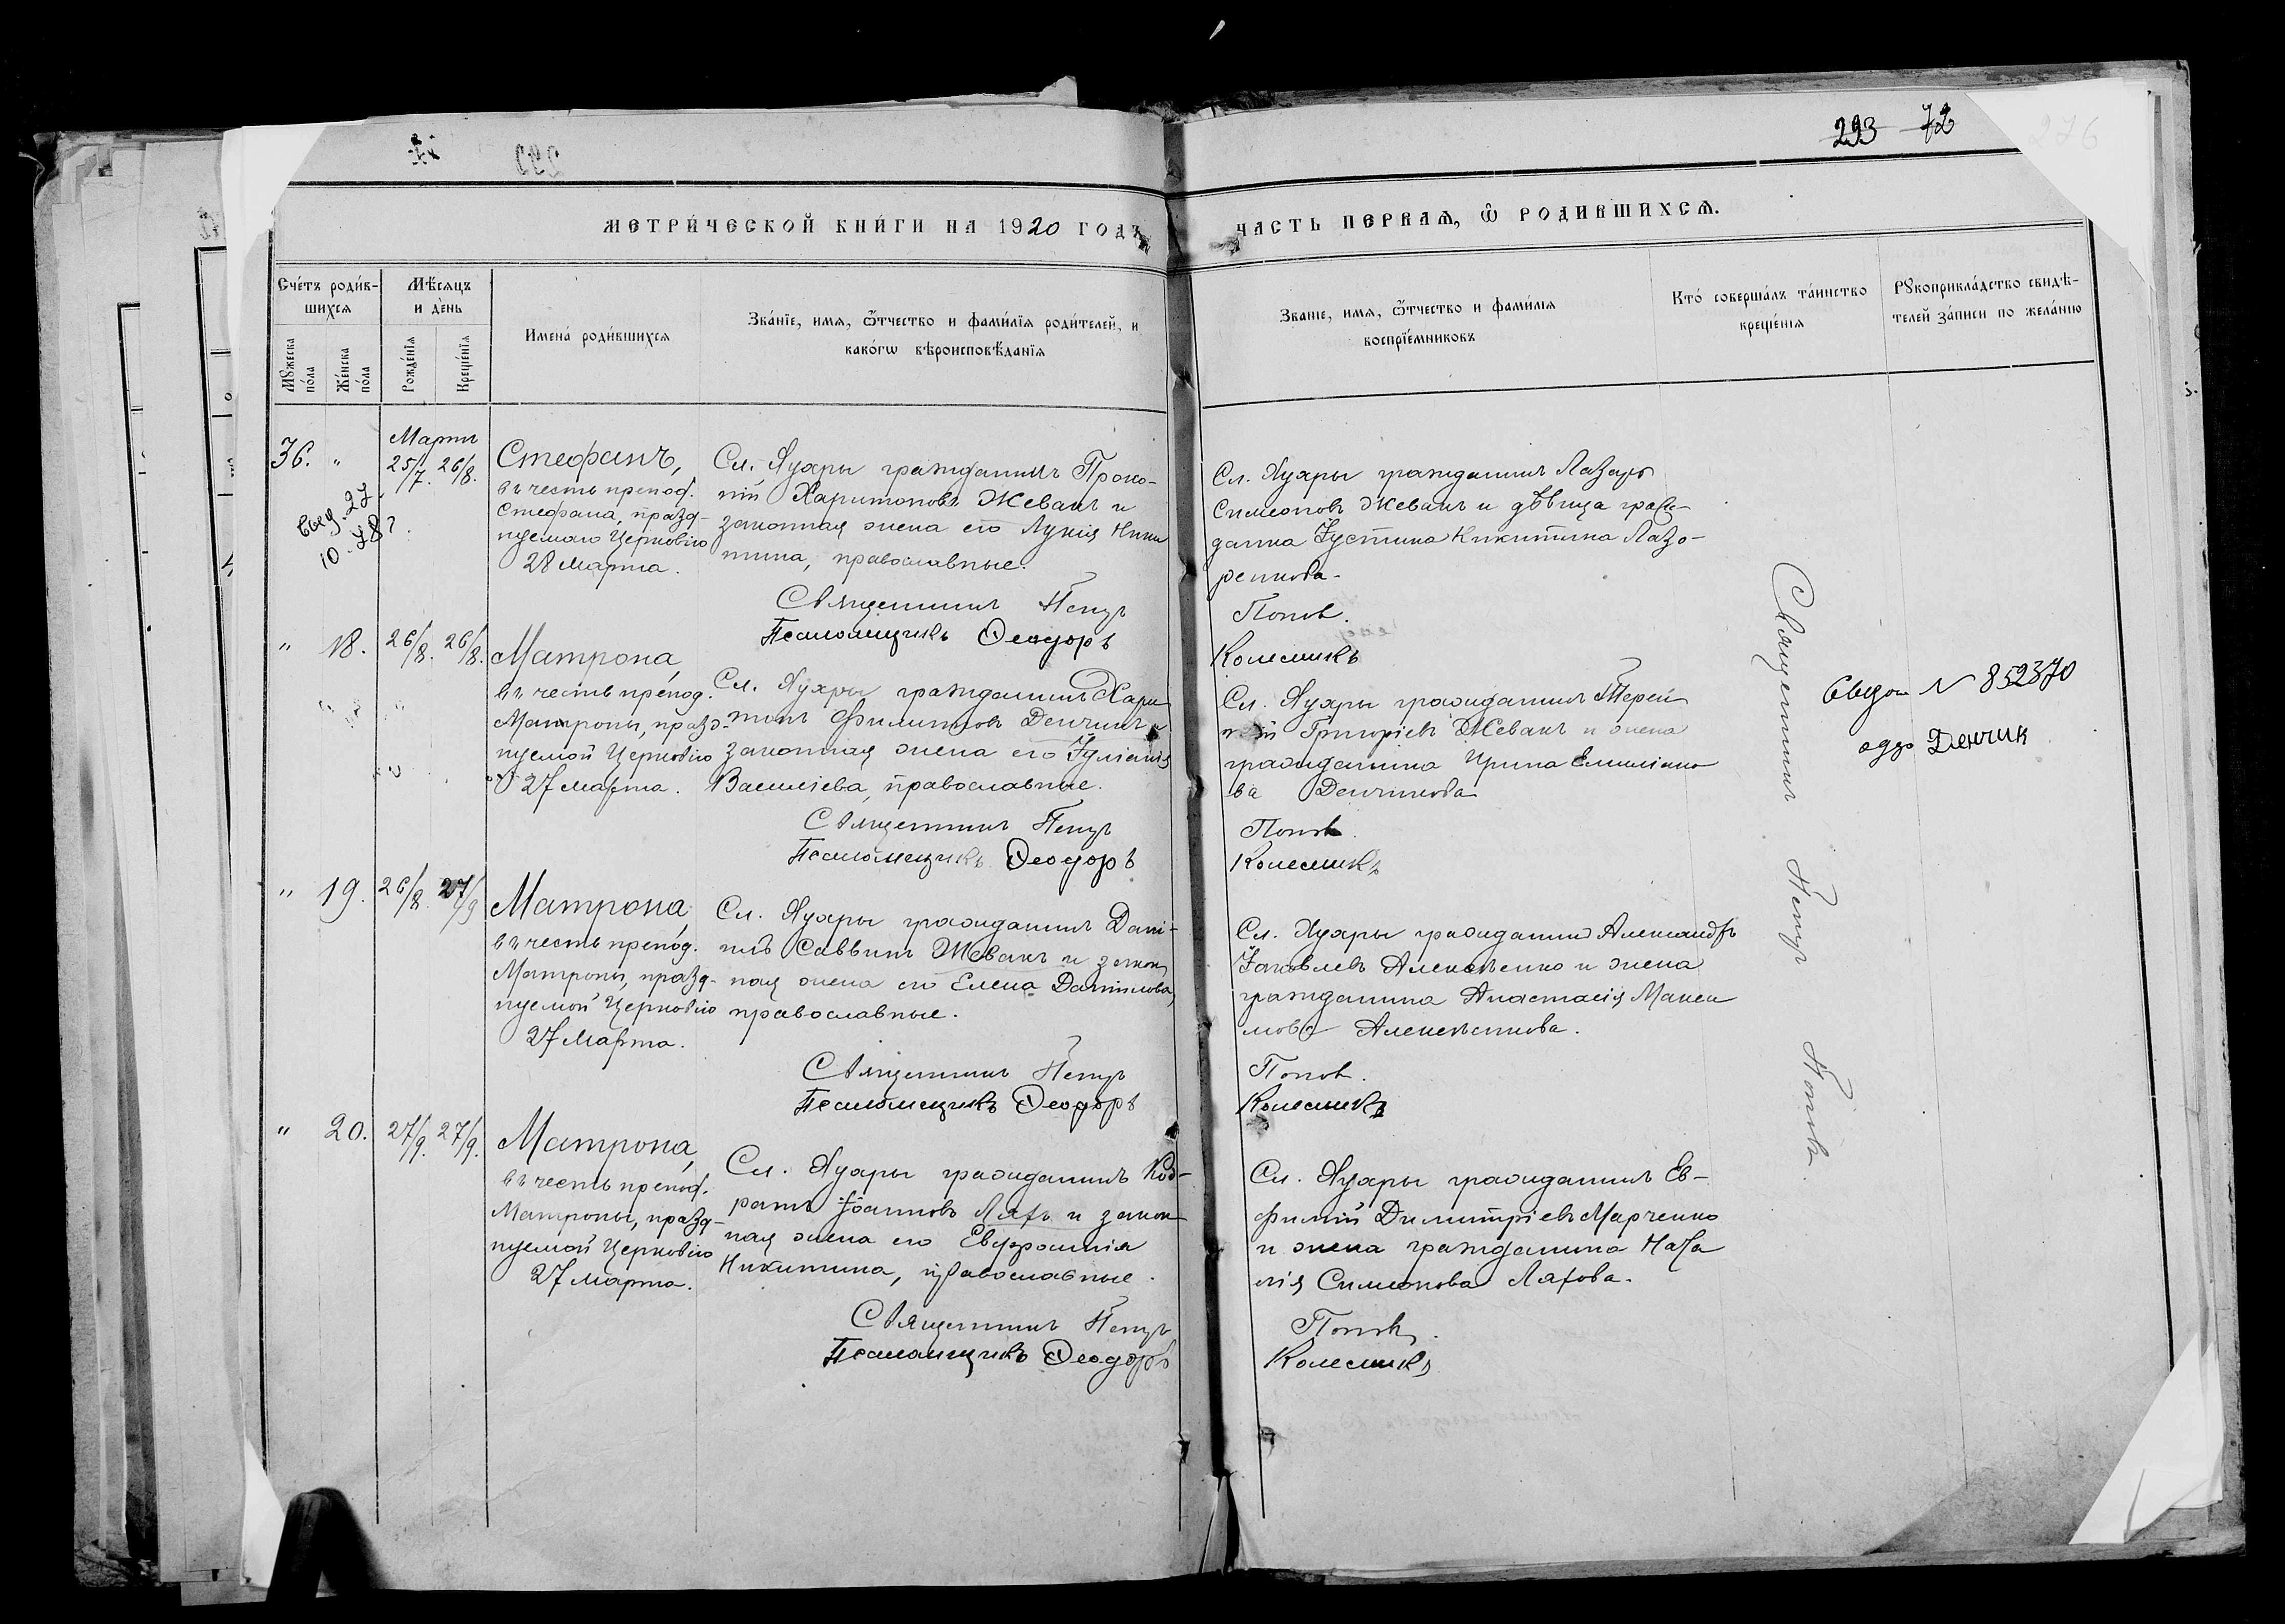 293 72
276
МЕТРИ́ЧЕСКОЙ КНИ́ГИ НА 1920 ГОДЪ
ЧАСТЬ ПЕРВАЯ, Ѡ РОДИВШИХСЯ.
Сче́тъ роди́в-
шихся
Мꙋжеска по́ла
Же́нска по́ла
Мѣ́сяцъ
и де́нь
Рожде́нїя
Креще́нїя
Имена́ роди́вшихся
Зва́нїе, имя, ѻ҆́тчество и фами́лїя роди́телей, и
како́гѡ вѣроисповѣ́данїя
Зва́нїе, имя, ѻ҆́тчество и фами́лїя
воспрїе́мниковъ
Кто́ соверша́лъ та́инство
креще́нїя
Рꙋкоприкла́дство свидѣ́-
телей за́писи по жела́нїю
36. "
Мартъ
25/7. 26/8.
Стефанъ,
въ честь препод.
Стефана, празд-
нуемаго Церковію
28 Марта.
Сл. Яухры гражданинъ Проко-
пій Харитоновъ Жевакъ и
законная жена его Лукія Ники
тина, православные.
Священникъ Петръ
Псаломщикъ Ѳеодоръ
Сл. Яухры гражданинъ Лазарь
Симеоновъ Жевакъ и дѣвица граж-
данка Іустина Никитина Лазо-
ренкова.
Поповъ.
Колесникъ
" 18. 26/8. 26/8.
Матрона,
въ честь препод.
Матроны, празд-
нуемой Церковію
27 Марта.
Сл. Яухры гражданинъ Хари
тонъ Филипповъ Денчикъ и
законная жена его Іуліанія
Василіева, православные.
Священникъ Петръ
Псаломщикъ Ѳеодоръ
Сл. Яухры гражданинъ Терен
тій Григоріевъ Жевакъ и жена
гражданина Ирина Емиліано
ва Денчикова
Поповъ.
Колесникъ
Священникъ Петръ Поповъ.
N 852370
Денчик
" 19. 26/8. 27/9
Матрона
въ честь препод.
Матроны, празд-
нуемой Церковію
27 Марта.
Сл. Яухры гражданинъ Дані-
илъ Саввинъ Жевакъ и закон
ная жена его Елена Даниилова,
православные.
Священникъ Петръ
Псаломщикъ Ѳеодоръ
Сл. Яухры гражданинъ Александръ
Іаковлевъ Алексѣенко и жена
гражданина Анастасія Макси
мова Алексѣенкова.
Поповъ.
Колесникъ
" 20. 27/9. 27/9.
Матрона,
въ честь препод.
Матроны, празд-
нуемой Церковію
27 Марта.
Сл. Яухры гражданинъ Код-
ратъ Іоанновъ Ляхъ и закон
ная жена его Евфросинія
Никитина, православные.
Священникъ Петръ
Псаломщикъ Ѳеодоръ
Сл. Яухры гражданинъ Ев-
фимій Димитріевъ Марченко
и жена гражданина Ната
лія Симеонова Ляхова.
Поповъ.
Колесникъ